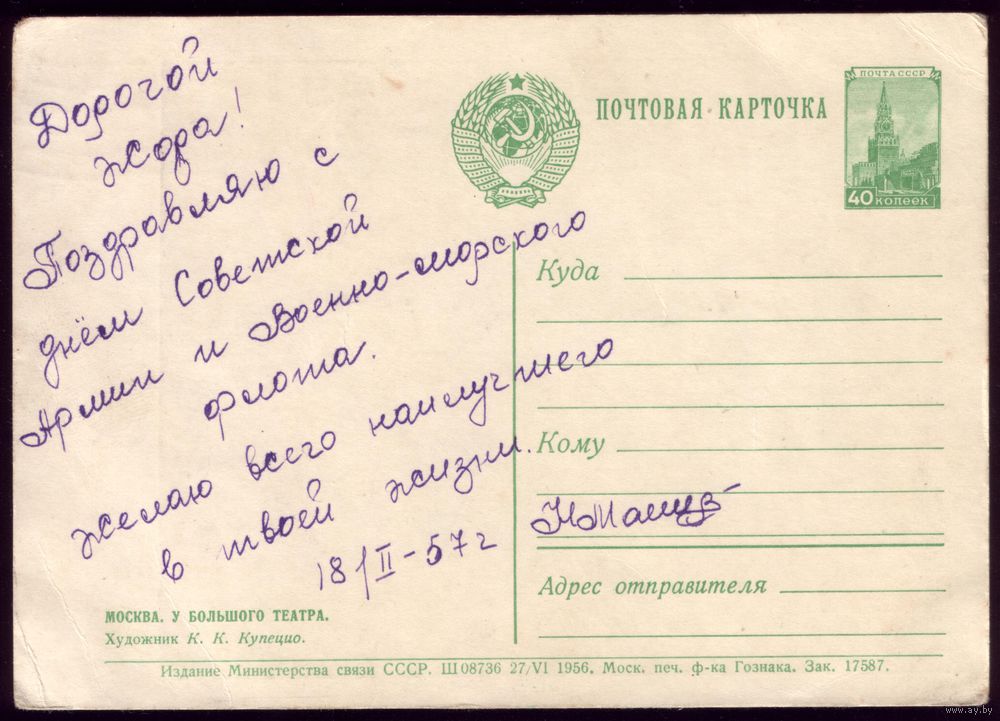 Дорогой
Жора!
Поздравляю с
днём Советской
Армии и Военно-морского
флота.
Желаю всего наилучшего
в твоей жизни.
18/II-57г
ПОЧТОВАЯ КАРТОЧКА
ПОЧТА СССР
40 КОПЕЕК
Куда
Кому
Адрес отправителя
МОСКВА. У БОЛЬШОГО ТЕАТРА.
Художник К. К. Купецио.
Издание Министерства связи СССР. Ш08736 27/VI 1956. Моск. печ. ф-ка Гознака. Зак. 17587.
www.ay.by